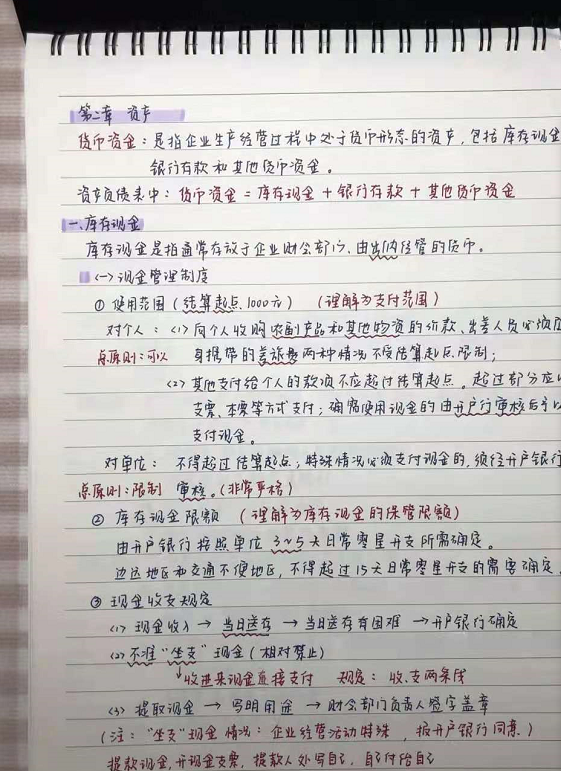 第二章 资产
货币资金：是指企业生产经营过程中处于货币形态的资产，包括库存现金
银行存款和其他货币资金。
资产负债表中：货币资金＝库存现金＋银行存款＋其他货币资金
一、库存现金
库存现金是指通常存放于企业财会部门、由出纳经管的货币。
（一）现金管理制度
① 使用范围（结算起点1000元）（理解为支付范围）
对个人：（1）向个人收购农副产品和其他物资的价款、出差人员必须
点原则：可以 身携带的差旅费两种情况不受结算起点限制；
（2）其他支付给个人的款项不应超过结算起点。超过部分应
支票、本票等方式支付；确需使用现金的由开户行审核后予以
支付现金。
对单位：不得超过结算起点；特殊情况必须支付现金的，须经开户银行
点原则：限制 审核。（非常严格）
② 库存现金限额（理解为库存现金的保管限额）
由开户银行按照单位3~5天日常零星开支所需确定。
边远地区和交通不便地区，不得超过15天日常零星开支的需要确定。
③ 现金收支规定
（1）现金收入 → 当日送存 → 当日送存有困难 → 开户银行确定
（2）不准“坐支”现金（相对禁止）
↓收进来现金直接支付 规定：收、支两条线
（3）提取现金 → 写明用途 → 财会部门负责人签字盖章
（注：“坐支”现金情况：企业经营活动特殊，报开户银行同意）
提款现金，开现金支票，提款人处写自己，自己付给自己